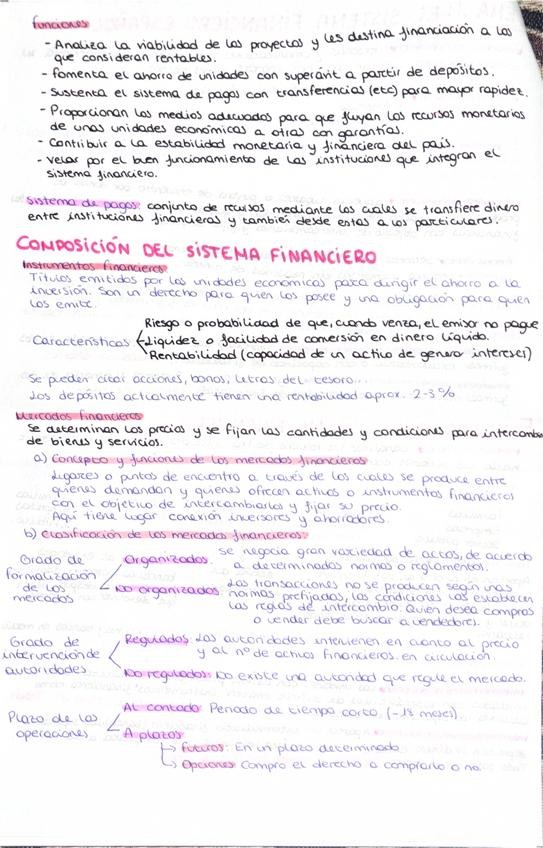 Funciones
- Analiza la viabilidad de los proyectos y les destina financiación a los
que consideran rentables.
- Fomenta el ahorro de unidades con superávit a partir de depósitos.
- Sustenta el sistema de pagos con transferencias (etc) para mayor rapidez.
- Proporcionan los medios adecuados para que fluyan los recursos monetarios
de unas unidades económicas a otras con garantías.
- Contribuir a la estabilidad monetaria y financiera del país.
- Velar por el buen funcionamiento de las instituciones que integran el
sistema financiero.
Sistema de pagos: conjunto de recursos mediante los cuales se transfiere dinero
entre instituciones financieras y también desde estas a los particulares.
COMPOSICIÓN DEL SISTEMA FINANCIERO
Instrumentos financieros:
Títulos emitidos por las unidades económicas para dirigir el ahorro a la
inversión. Son un derecho para quien los posee y una obligación para quien
los emite.
Riesgo o probabilidad de que, cuando venza, el emisor no pague
Características Liquidez o facilidad de conversión en dinero líquido.
Rentabilidad (capacidad de un activo de generar intereses)
Se pueden citar acciones, bonos, letras del tesoro...
Los depósitos actualmente tienen una rentabilidad aprox. 2-3%
Mercados financieros
Se determinan los precios y se fijan las cantidades y condiciones para intercambio
de bienes y servicios.
a) Concepto y funciones de los mercados financieros
Lugares o puntos de encuentro a través de los cuales se produce entre
quienes demandan y quienes ofrecen activos o instrumentos financieros
con el objetivo de intercambiarlos y fijar su precio.
Aquí tiene lugar conexión inversores y ahorradores.
b) Clasificación de los mercados financieros:
Grado de formalización de los mercados
Organizados: se negocia gran variedad de actos, de acuerdo
a determinados normas o reglamentos.
No organizados: Las transacciones no se producen según unas
normas prefijadas, las condiciones las establecen
las reglas de intercambio. Quien desea compras
o vender debe buscar a vendedores.
Grado de intervención de autoridades
Regulados: Las autoridades intervienen en cuanto al precio
y al nº de activos financieros en circulación.
No regulados: No existe una autoridad que regule el mercado.
Plazo de las operaciones
Al contado: Periodo de tiempo corto. (-18 meses).
A plazos
Futuros: En un plazo determinado
Opciones: Compro el derecho a comprarlo o no.